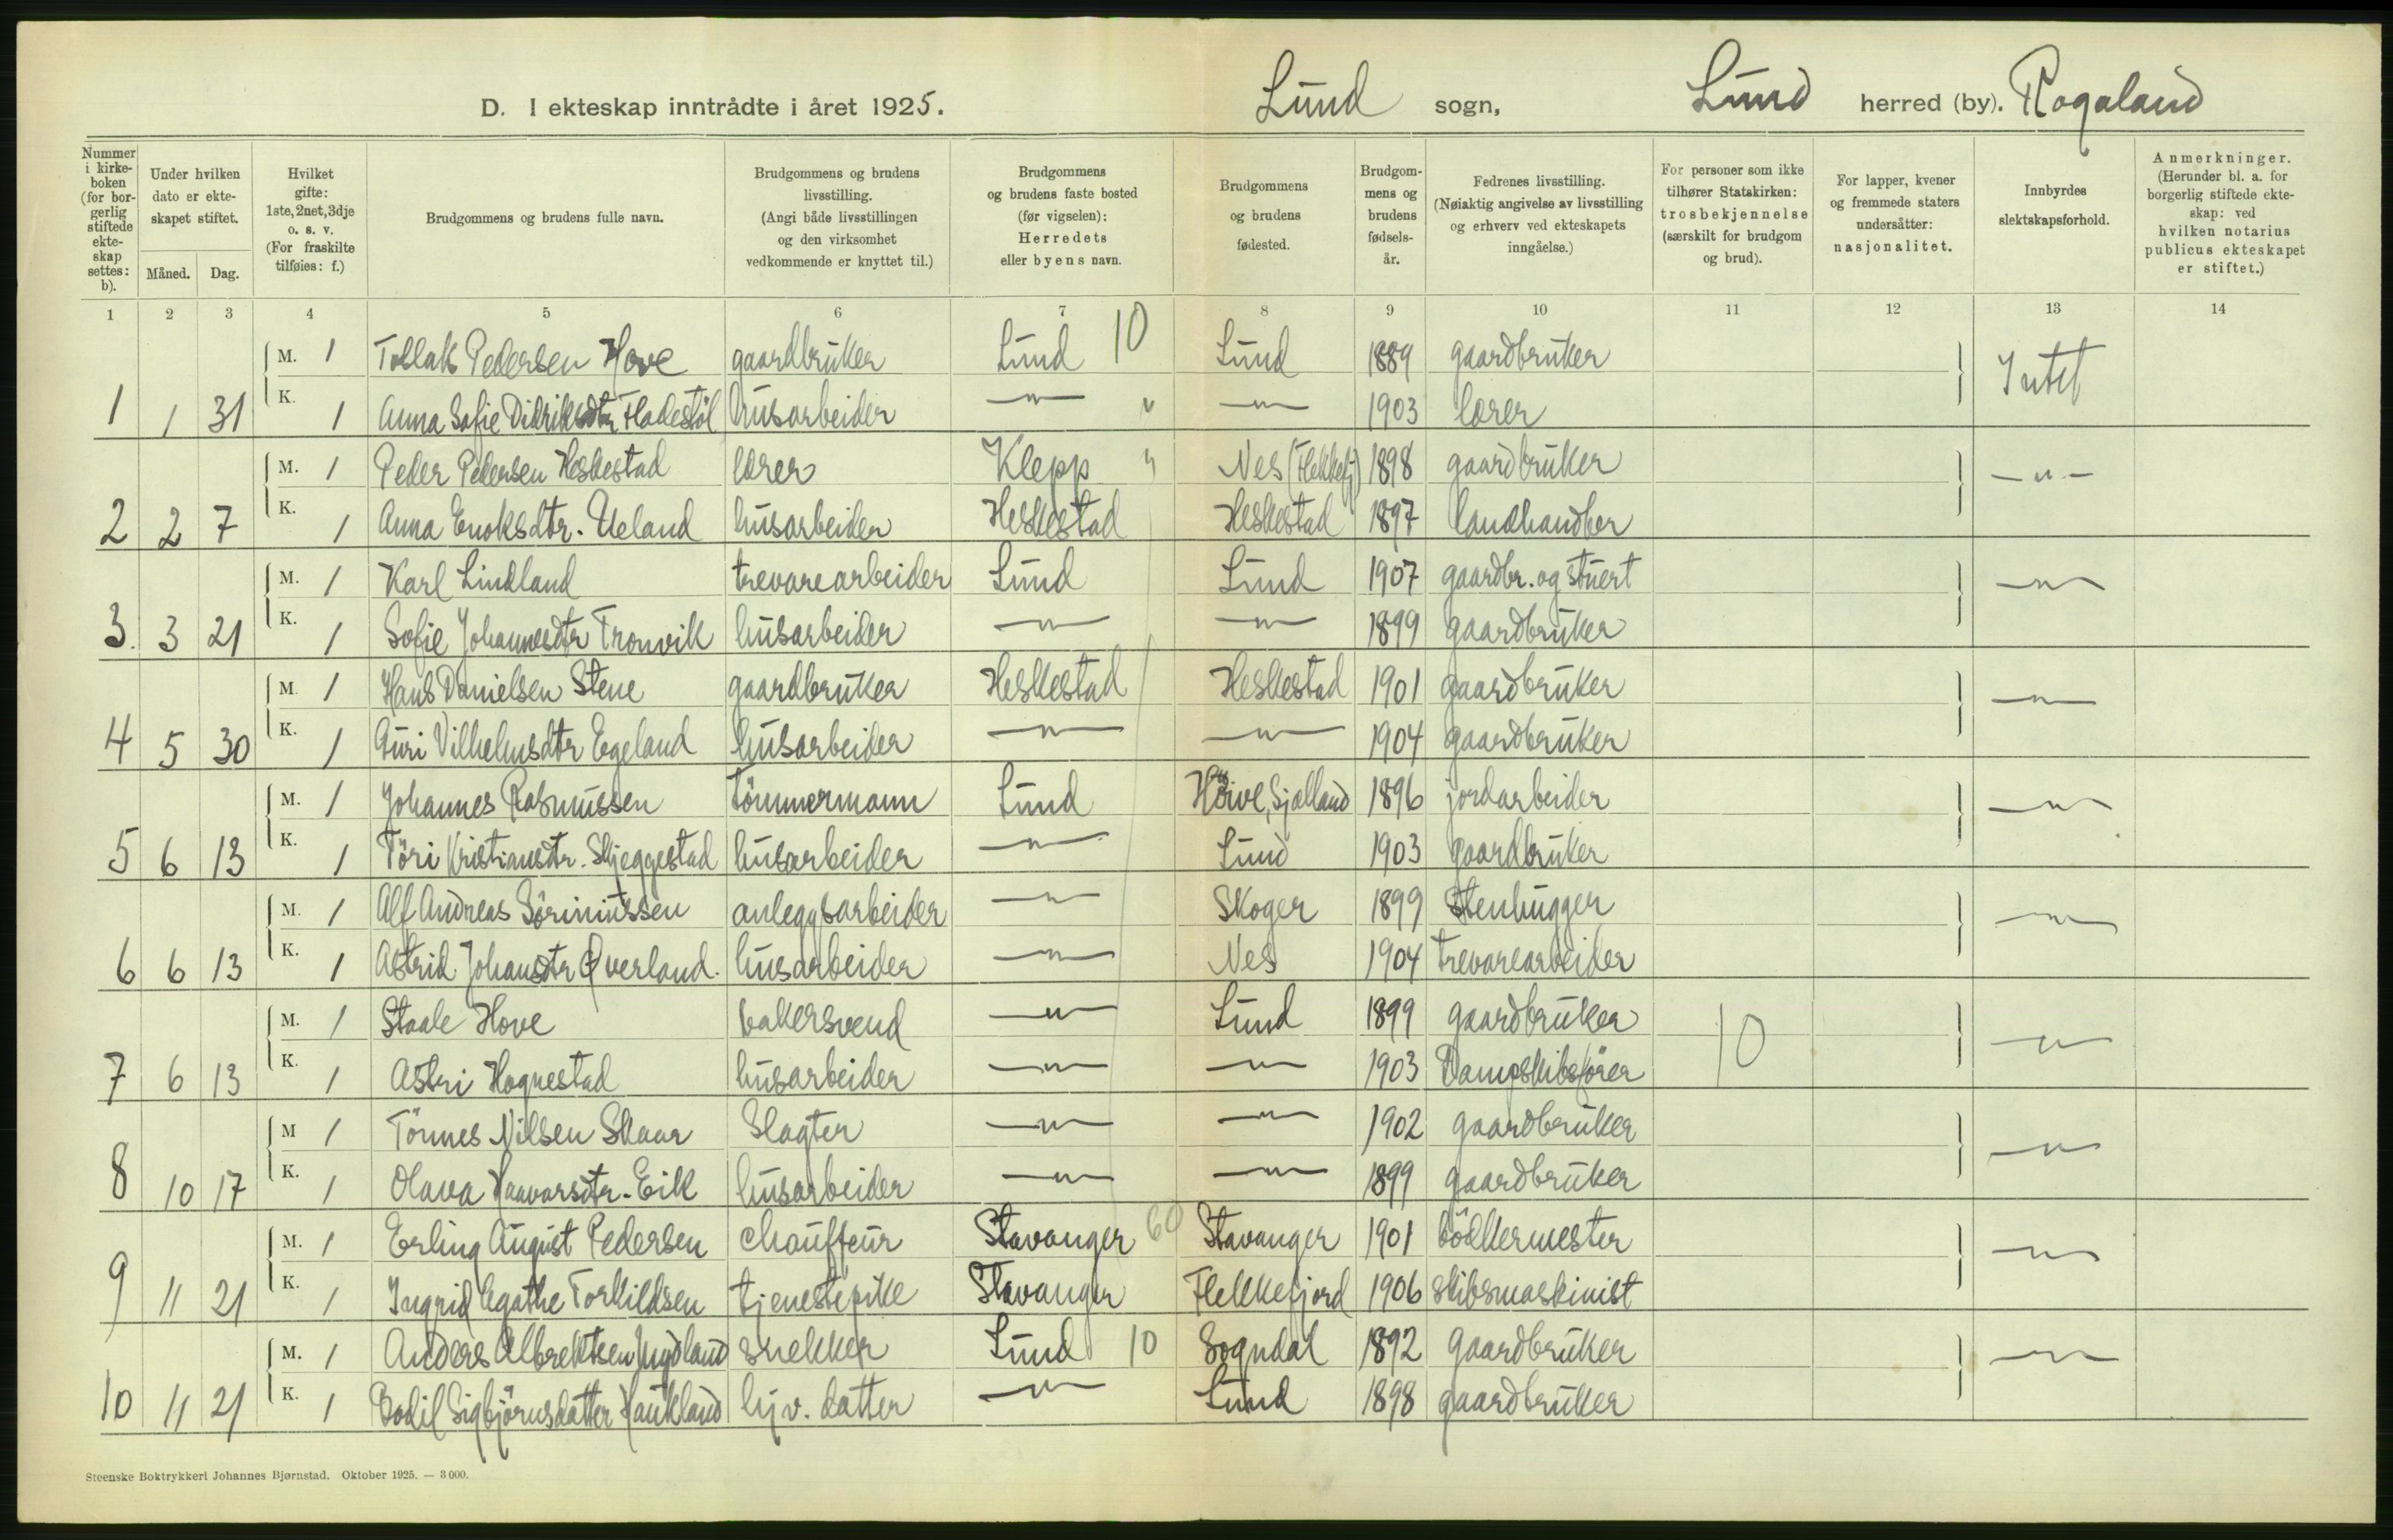 D. I ekteskap inntrådte i året 1925. Lund sogn, Lund herred (by). Rogaland
Nummer i kirkeboken (for borgerlig stiftede ekteskap settes: b).
Under hvilken dato er ekteskapet stiftet.
Måned. Dag.
Hvilket gifte: 1ste, 2net, 3dje o. s. v. (For fraskilte tilføies: f.)
Brudgommens og brudens fulle navn.
Brudgommens og brudens livsstilling. (Angi både livsstillingen og den virksomhet vedkommende er knyttet til.)
Brudgommens og brudens faste bosted (før vigselen): Herredets eller byens navn.
Brudgommens og brudens fødested.
Brudgommens og brudens fødselsår.
Fedrenes livsstilling. (Nøiaktig angivelse av livsstilling og erhverv ved ekteskapets inngåelse.)
For personer som ikke tilhører Statskirken: trosbekjennelse (særskilt for brudgom og brud).
For lapper, kvener og fremmede staters undersåtter: nasjonalitet.
Innbyrdes slektskapsforhold.
Anmerkninger. (Herunder bl. a. for borgerlig stiftede ekteskap: ved hvilken notarius publicus ekteskapet er stiftet.)
1 2 3 4 5 6 7 8 9 10 11 12 13 14
M. 1 Tollak Pedersen Hove gaardbruker Lund 10 Lund 1889 gaardbruker Intet
1 1 31 K. 1 Anna Sofie Didriksdtr Fladestøl husarbeider —"— " —"— 1903 lærer
M. 1 Peder Pedersen Heskestad lærer Klepp " Nes (Flekkefj) 1898 gaardbruker —"—
2 2 7 K. 1 Anna Enoksdtr. Ueland husarbeider Heskestad Heskestad 1897 landhandler
M. 1 Karl Lindland trevarearbeider Lund Lund 1907 gaardbr. og stuert —"—
3. 3 21 K. 1 Sofie Johannesdtr Tronvik husarbeider —"— —"— 1899 gaardbruker
M. 1 Hans Danielsen Stene gaardbruker Heskestad Heskestad 1901 gaardbruker —"—
4 5 30 K. 1 Guri Vilhelmsdtr Egeland husarbeider —"— —"— 1904 gaardbruker
M. 1 Johannes Rasmussen tömmermann Lund Höive, Sjælland 1896 jordarbeider —"—
5 6 13 K. 1 Töri Kristiansdtr. Skjeggestad husarbeider —"— Lund 1903 gaardbruker
M. 1 Alf Andreas Söriniussen anleggsarbeider —"— Skoger 1899 Stenhugger —"—
6 6 13 K. 1 Astrid Johansdtr Øverland. husarbeider —"— Nes 1904 trevarearbeider
M. 1 Staale Hove bakersvend —"— Lund 1899 gaardbruker 10 —"—
7 6 13 K. 1 Astri Hognestad husarbeider —"— —"— 1903 Dampskibsförer
M 1 Tönnes Nilsen Skaar Slagter —"— —"— 1902 gaardbruker —"—
8 10 17 K. 1 Olava Haavarsdtr. Eik husarbeider —"— —"— 1899 gaardbruker
M. 1 Erling August Pedersen chauffeur Stavanger 60 Stavanger 1901 bödkermester —"—
9 11 21 K. 1 Ingrid Agathe Torkildsen tjenestepike Stavanger Flekkefjord 1906 skibsmaskinist
M. 1 Anders Albrektsen Mydland snekker Lund 10 Sogndal 1892 gaardbruker —"—
10 11 21 K. 1 Bodil Sigbjörnsdatter Haukland hjv. datter —"— Lund 1898 gaardbruker
Steenske Boktrykkeri Johannes Bjørnstad. Oktober 1925. — 3 000.